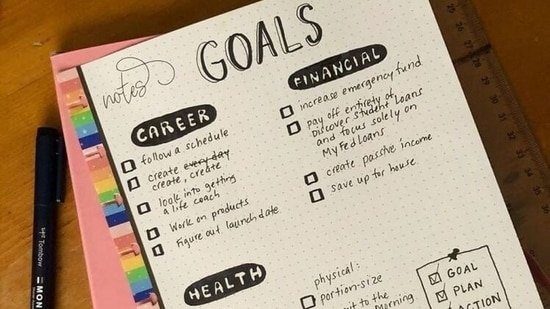 notes
GOALS
CAREER
follow a schedule
create every day
create, create
look into getting
a life coach
Work on products
Figure out launch date
FINANCIAL
increase emergency fund
pay off entirety of
Discover student loans
and focus solely on
MyFedLoans
create passive income
save up for house
HEALTH
physical:
portion-size
to the
Morning
GOAL
PLAN
ACTION
Tombow
MON